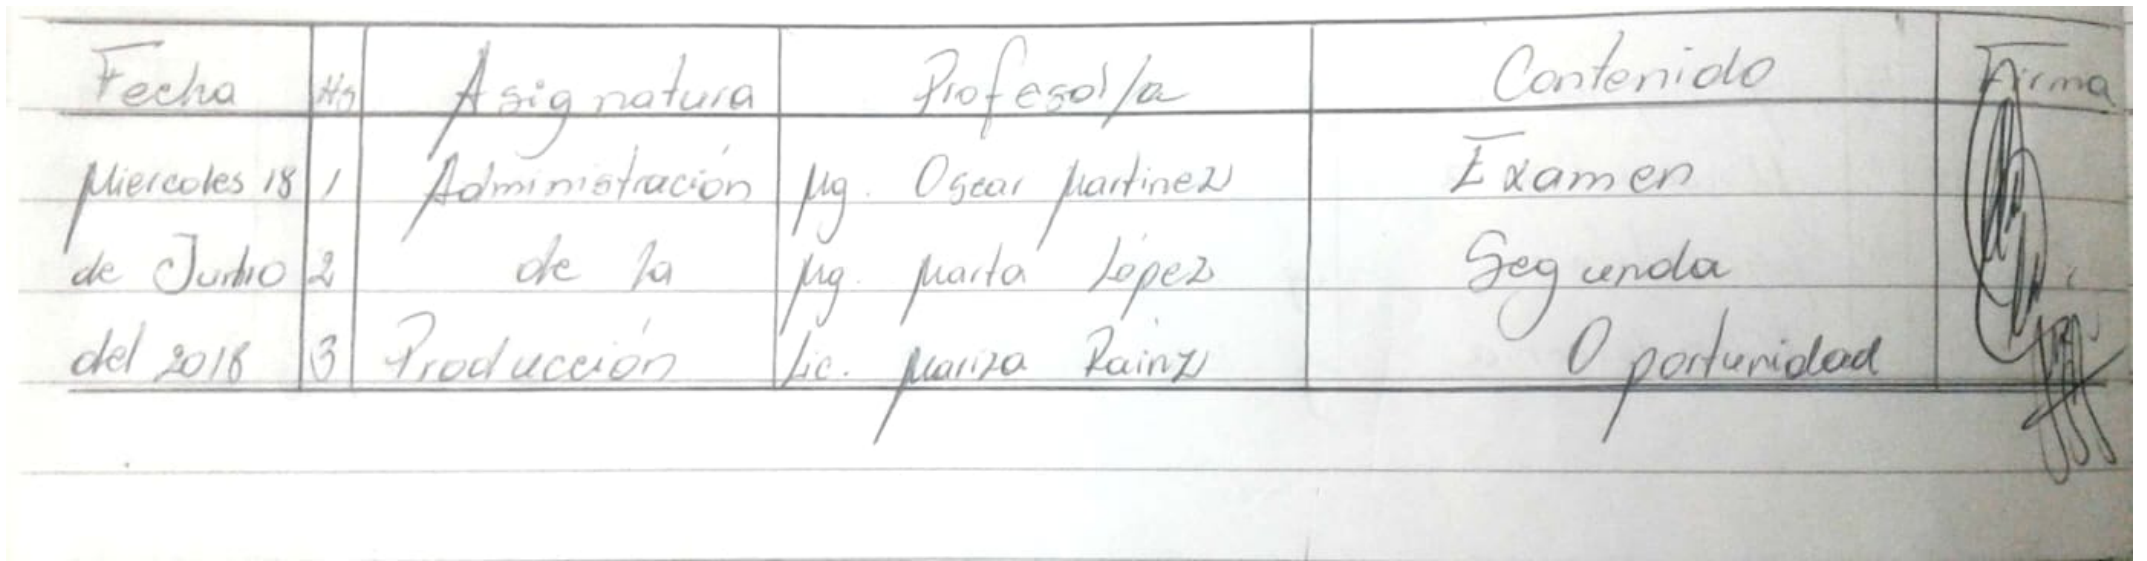 Fecha Hs Asignatura Profesor/a Contenido Firma
Miercoles 18 1 Administración Mg. Oscar Martinez Examen
de 2 de la Mg. Marta López Segunda
del 2018 3 Producción Lic. Mariza Rainz Oportunidad